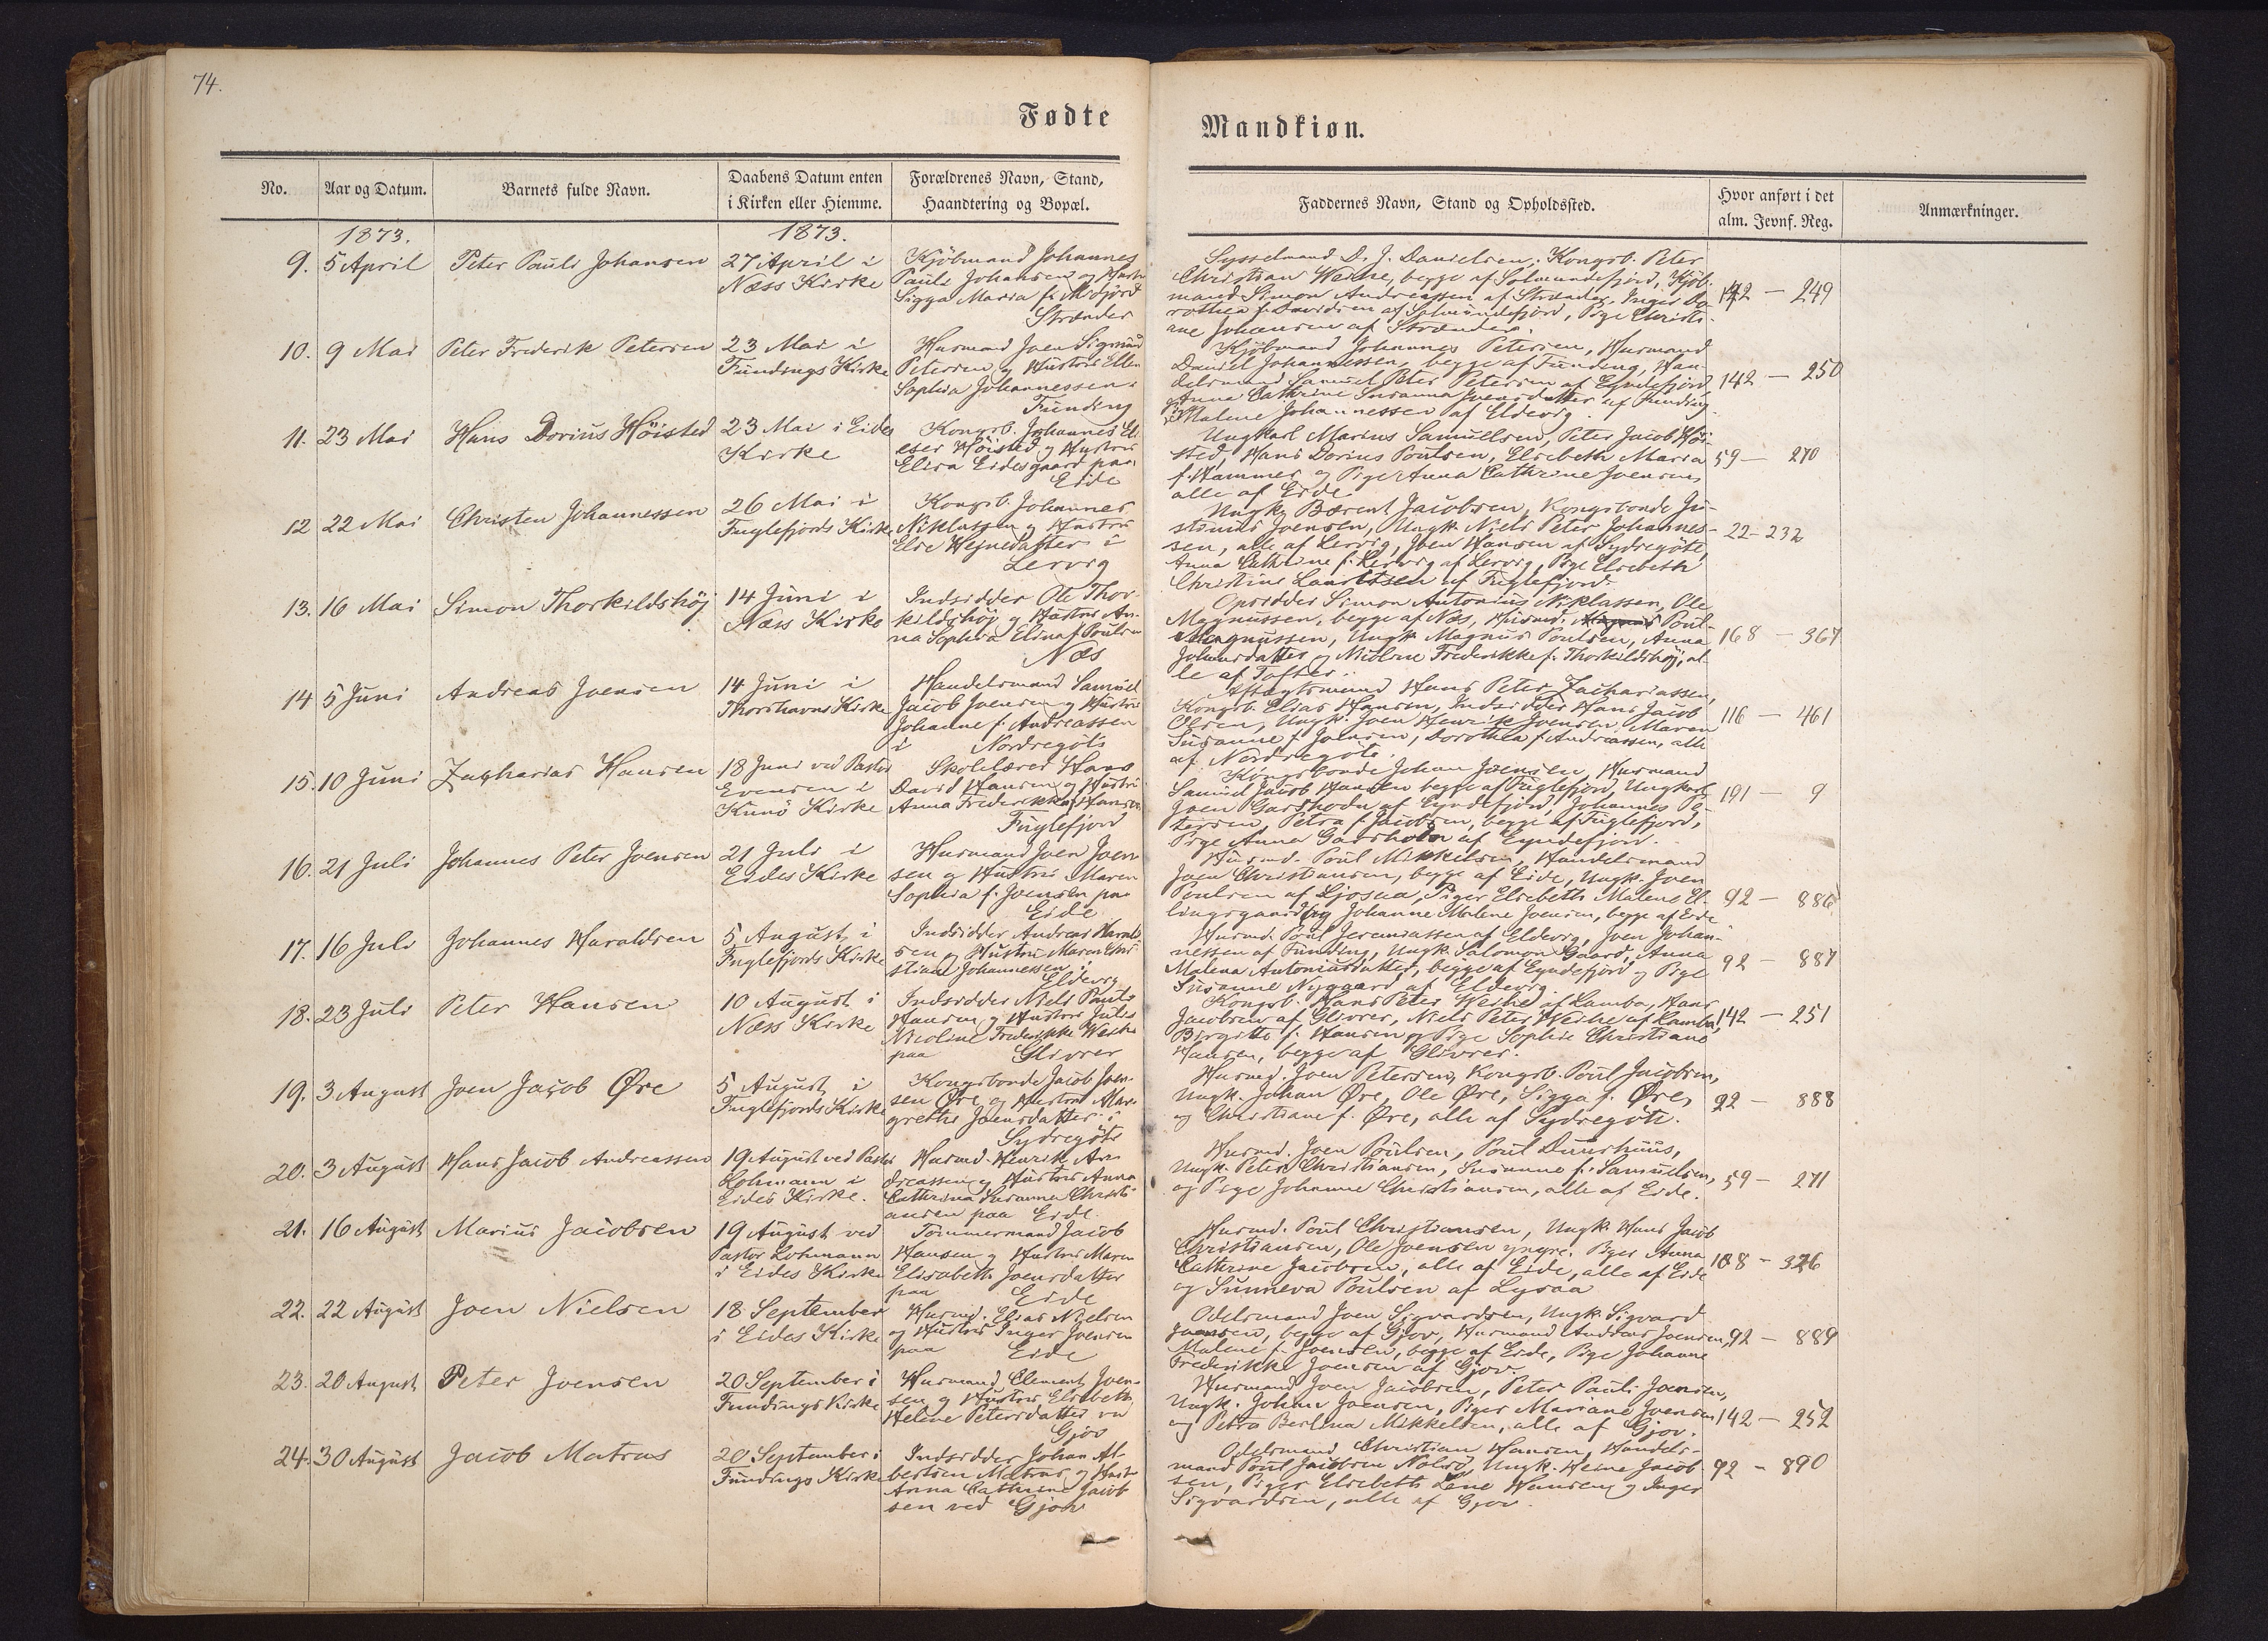 74.
Fødte
Mandkiøn.
No.
Aar og Datum.
Barnets fulde Navn.
Daabens Datum enten
i Kirken eller Hiemme.
Forældrenes Navn, Stand,
Haandtering og Bopæl.
Faddernes Navn, Stand og Opholdssted.
Hvor anført i det
alm. Jevnf. Reg.
Anmærkninger.
1873.
1873.
9. 5 April
Peter Pauli Johansen
27 April i
Næss Kirke
Kjöbmand Johannes
Pauli Johansen og Hustru
Sigga Maria f.
Strænder
Sysselmand D. J. Danielsen, Kongsb. Peter
Christian Weihe, begge af Solmundefjord, Kjöb-
mand Simon Andreassen af Strænder, Inger Do-
rothea f. Davidsen af Solmundefjord, Pige Christi-
ane Johansen af Strænder.
142 — 249
10. 9 Mai
Peter Frederik Petersen
23 Mai i
Fundings Kirke
Husmand Joen Sigmund
Petersen og Hustru Ellen
Sophia Johannessen i
Funding
Kjöbmand Johannes Petersen, Husmand
Daniel Johannessen, begge af Funding, Han-
delsmand Samuel Peter Petersen af Eyndefjord
Anna Cathrine Susanna Joensdatter af Funding
Malene Johannessen af Eldevig.
142 — 250
11. 23 Mai
Hans Dorius Höisted
23 Mai i Eides
Kirke
Kongsb. Johannes Eli-
eser Höisted og Hustru
Elisa Eidesgaard paa
Eide
Ungkarl Marius Samuelsen, Peter Jacob Höi-
sted, Hans Dorius Poulsen, Elsebeth Maria
f. Hammer og Pige Anna Cathrine Joensen,
alle af Eide
59 — 270
12 22 Mai
Christen Johannessen
26 Mai i
Fuglefjords Kirke
Kongsb. Johannes
Niklassen og Hustru
Else Hejnesdatter i
Lervig
Ungk. Bærent Jacobsen, Kongsbonde Ju-
stinus Joensen, Ungk. Niels Peter Johannes-
sen, alle af Lervig, Joen Hansen af Sydregöte,
Anna Cathrine f. Lervig af Lervig, Pige Elsebeth
Christine Lauritsen af Fuglefjord.
22 - 232
13. 16 Mai
Simon Thorkildshöj
14 Juni i
Næss Kirke
Indsidder Ole Thor-
kildshöj og Hustru An-
na Sophia Elina f. Poulsen
Næs
Opsidder Simon Antonius Niklassen, Ole
Magnussen, begge af Næs, Husmd. Poul
Magnussen, Ungk. Magnus Poulsen, Anna
Johansdatter og Nicoline Frederikke f. Thorkildshöj, al-
le af Tofter.
168 — 367
14 5 Juni
Andreas Joensen
14 Juni i
Thorshavns Kirke
Handelsmand Samuel
Jacob Joensen og Hustru
Johanne f. Andreassen
i Nordregöte
Aftægtsmand Hans Peter Zachariassen,
Kongsb. Elias Hansen, Indsidder Hans Jacob
Olsen, Ungk. Joen Henrik Joensen, Maren
Susanne f. Joensen, Dorothea f. Andreassen, alle
af Nordregöte.
116 — 461
15. 10 Juni
Zacharias Hansen
18 Juni ved Pastor
Evensen i
Kunö Kirke
Skolelærer Hans
David Hansen og Hustru
Anna Frederikke f. Hansen
Fuglefjord
Kongsbonde Johan Joensen, Husmand
Samuel Jacob Hansen begge af Fuglefjord, Ungkarl
Joen Garshodn af Eyndefjord, Johannes Pe-
tersen, Petra f. Jacobsen, begge af Fuglefjord,
Pige Anna Garshodn af Eyndefjord.
191 — 9
16. 21 Juli
Johannes Peter Joensen
21 Juli i
Eides Kirke
Husmand Joen Joen-
sen og Hustru Maren
Sophia f. Joensen paa
Eide
Husmd. Poul Mikkelsen, Handelsmand
Joen Christiansen, begge af Eide, Ungk. Joen
Poulsen af Ljosaa, Piger Elsebeth Malene El-
lingsgaard og Johanne Malene Joensen, begge af Eide
92 — 886
17. 16 Juli
Johannes Haraldsen
5 August i
Fuglefjords Kirke
Indsidder Andreas Harald-
sen og Hustru Maren Chri-
stine Johannessen i
Eldevig
Husmd. Poul Jeremiassen af Eldevig, Joen Johan-
nessen af Funding, Ungk. Salomon Gaard, Anna
Malena Antoniusdatter, begge af Eyndefjord og Pige
Susanne Nygaard af Eldevig.
92 — 887
18. 23 Juli
Peter Hansen
10 August i
Næss Kirke
Indsidder Niels Pauli
Hansen og Hustru Julie
Nicoline Frederikke Weihe
paa Glivrer
Kongsb. Hans Peter Weihe af Lamba, Hans
Jacobsen af Glivrer, Niels Peter Weihe af Lamba,
Birgitte f. Hansen og Pige Sophie Christiane
Hansen, begge af Glivrer.
142 — 251
19. 3 August
Joen Jacob Øre
5 August i
Fuglefjords Kirke
Kongsbonde Jacob Joen-
sen Øre og Hustru Mar-
grethe Joensdatter i
Sydregöte
Husmd. Joen Petersen, Kongsb. Poul Jacobsen,
Ungk. Johan Øre, Ole Øre, Sigga f. Øre,
og Christiane f. Øre, alle af Sydregöte.
92 — 888
20. 3 August
Hans Jacob Andreassen
19 August ved Pastor
Lohmann i
Eides Kirke.
Husmd. Henrik An-
dreassen og Hustru Anna
Cathrina Susanna Christi-
ansen paa Eide.
Husmd. Joen Poulsen, Poul Duurhuus,
Ungk. Peter Christiansen, Susanne f. Samuelsen,
og Pige Johanne Christiansen, alle af Eide.
59 — 271
21. 16 August
Marius Jacobsen
19 August ved
Pastor Lohmann
i Eides Kirke
Tömmermand Jacob
Hansen og Hustru Maren
Elisabeth Joensdatter
paa Eide
Husmd. Poul Christiansen, Ungk. Hans Jacob
Christiansen, Ole Joensen yngre. Piger Anna
Cathrine Jacobsen, alle af Eide, alle af Eide
og Sunneva Poulsen af Lysaa
108 — 326
22. 22 August
Joen Nielsen
18 September
i Eides Kirke
Husmd. Elias Nielsen
og Hustru Inger Joensen
paa Eide
Odelsmand Joen Sigvardsen, Ungk. Sigvard
Joensen, begge af Gjov, Husmand Andreas Joensen,
Malene f. Joensen, begge af Eide, Pige Johanne
Frederikke Joensen af Gjov.
92 — 889
23. 20 August
Peter Joensen
20 September i
Fundings Kirke
Husmand Clement Joen-
sen og Hustru Elsebeth
Helene Petersdatter ved
Gjov
Husmand Joen Jacobsen, Peter Pauli Joensen,
Ungk. Johan Joensen, Piger Mariane Joensen
og Petra Berlina Mikkelsen, alle af Gjov.
142 — 252
24. 30 August
Jacob Matras
20 September i
Fundings Kirke
Indsidder Johan Al-
bertsen Matras og Hustru
Anna Cathrine Jacob
sen ved Gjov
Odelsmand Christian Hansen, Handels-
mand Poul Jacobsen Nolsø, Ungk. Heine Jacob-
sen, Piger Elsebeth Lene Hansen og Inger
Sigvardsen, alle af Gjov.
92 - 890